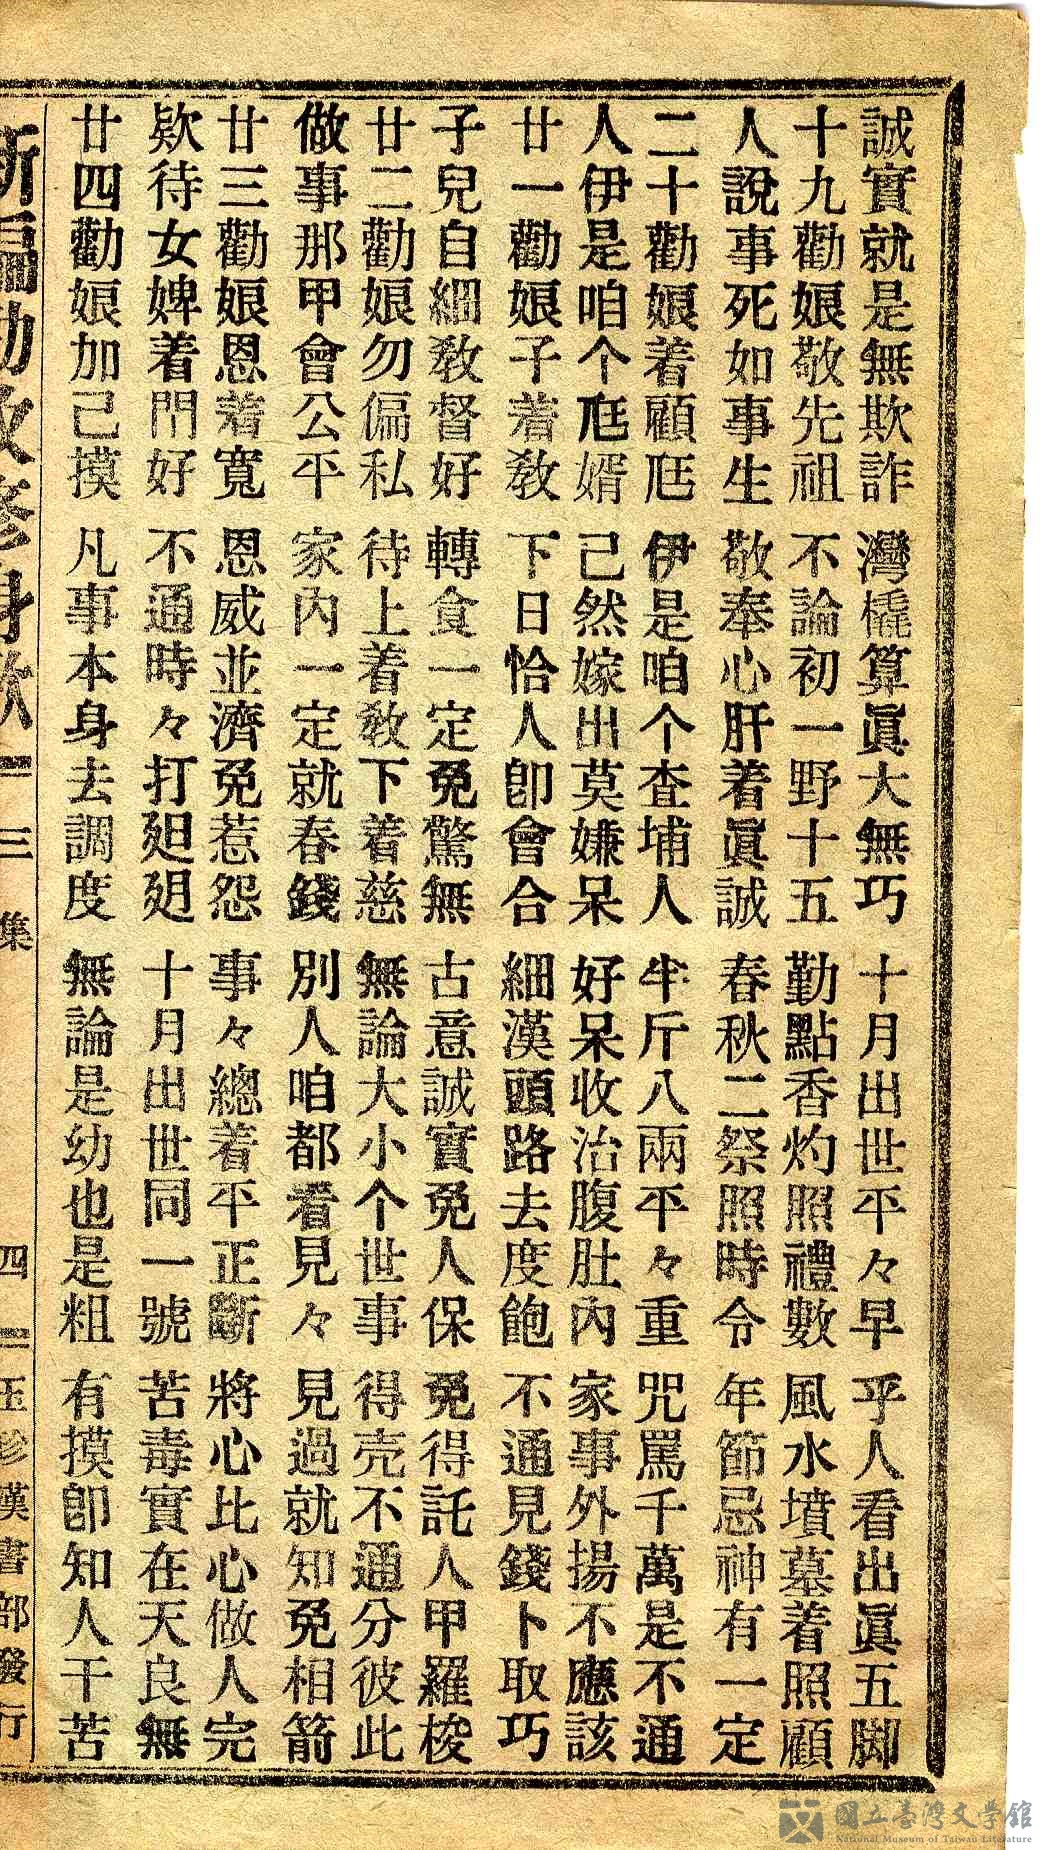 誠實就是無欺詐 灣橇算眞大無巧 十月出世平々早 乎人看出眞五脚
十九勸娘敬先祖 不論初一野十五 勤點香灼照禮數 風水墳墓着照顧
人說事死如事生 敬奉心肝着眞誠 春秋二祭照時令 年節忌神有一定
二十勸娘着顧尫 伊是咱个查埔人 半斤八兩平々重 咒罵千萬是不通
人伊是咱个尫婿 己然嫁出莫嫌呆 好呆收治腹肚內 家事外揚不應該
廿一勸娘子着教 下日恰人卽會合 細漢頭路去度飽 不通見錢卜取巧
子兒自細教督好 轉食一定免驚無 古意誠實免人保 免得託人甲羅梭
廿二勸娘勿偏私 待上着教下着慈 無論大小个世事 得壳不通分彼此
做事那甲會公平 家內一定就春錢 別人咱都看見々 見過就知免相箭
廿三勸娘恩着寬 恩威並濟免惹怨 事々總着平正斷 將心比心做人完
欵待女婢着鬥好 不通時々打廻廻 十月出世同一號 苦毒實在天良無
廿四勸娘加己摸 凡事本身去調度 無論是幼也是粗 有摸卽知人干苦
新編勸改修身歌 三集 四 玉珍漢書部發行
國立臺灣文學館
National Museum of Taiwan Literature